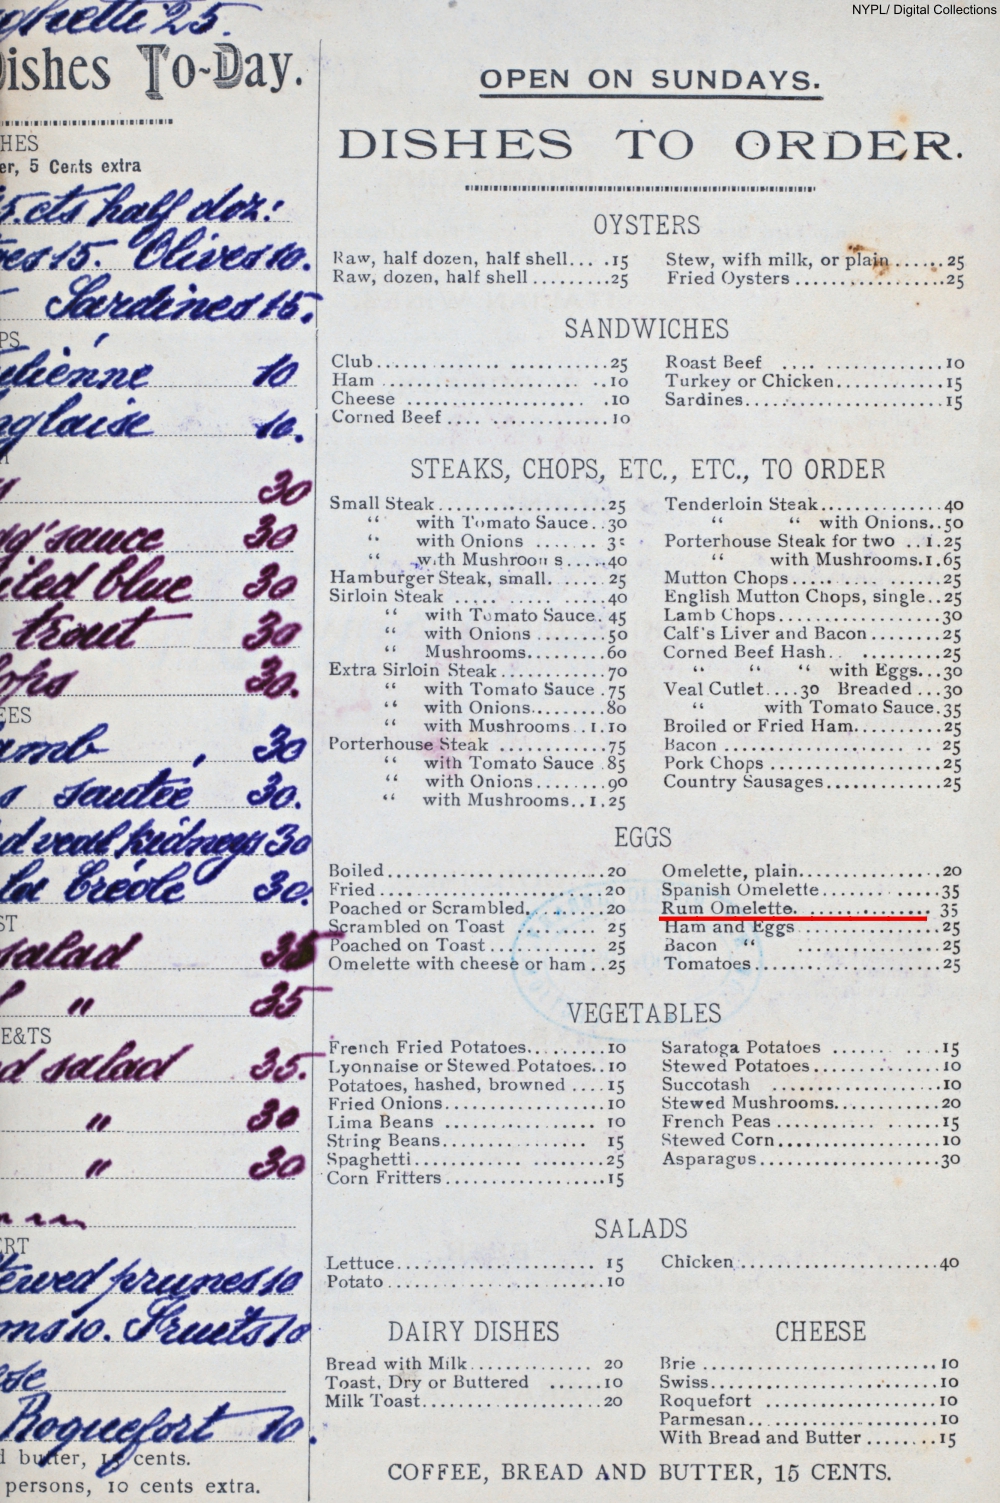 NYPL/ Digital Collections
ghetti 25.
Dishes To-Day.
HES
er, 5 Cents extra
5. cts half doz:
15. Olives 10.
Sardines 15.
PS
ulienne 10
nglaise 10.
30
sauce 30
blue 30
trout 30
30.
EES
amb, 30
s sautée 30.
d veal kidneys 30
la Créole 30.
ST
salad 35
" 35
E&TS
d salad 35.
" 30
" 30
ERT
tewed prunes 10
ms 10. Fruits 10
Roquefort 10.
d butter, 15 cents.
persons, 10 cents extra.
OPEN ON SUNDAYS.
DISHES TO ORDER.
OYSTERS
Raw, half dozen, half shell... .15
Raw, dozen, half shell .........25
Stew, wifh milk, or plain......25
Fried Oysters .................25
SANDWICHES
Club..........................25
Ham ..........................10
Cheese ........................10
Corned Beef.... ..............10
Roast Beef .... ..............10
Turkey or Chicken............15
Sardines.......................15
STEAKS, CHOPS, ETC., ETC., TO ORDER
Small Steak...................25
“ with Tomato Sauce..30
“ with Onions .......
“ with Mushrooms.....40
Hamburger Steak, small. .....25
Sirloin Steak .................40
“ with Tomato Sauce. 45
“ with Onions ......50
“ Mushrooms........60
Extra Sirloin Steak ............70
“ with Tomato Sauce .75
“ with Onions........80
“ with Mushrooms ..1.10
Porterhouse Steak ............75
“ with Tomato Sauce .85
“ with Onions........90
“ with Mushrooms..1.25
Tenderloin Steak..............40
“ “ with Onions..50
Porterhouse Steak for two ..1.25
“ with Mushrooms.1.65
Mutton Chops.................25
English Mutton Chops, single..25
Lamb Chops...................30
Calf's Liver and Bacon........25
Corned Beef Hash.. .........25
“ “ “ with Eggs...30
Veal Cutlet....30 Breaded ...30
“ with Tomato Sauce.35
Broiled or Fried Ham..........25
Bacon ........................25
Pork Chops ...................25
Country Sausages.............25
EGGS
Boiled.........................20
Fried..........................20
Poached or Scrambled.........20
Scrambled on Toast ........ 25
Poached on Toast............ 25
Omelette with cheese or ham ..25
Omelette, plain................20
Spanish Omelette..............35
Rum Omelette. ............... 35
Ham and Eggs................25
Bacon “ .....................25
Tomatoes.....................25
VEGETABLES
French Fried Potatoes.........10
Lyonnaise or Stewed Potatoes..10
Potatoes, hashed, browned ....15
Fried Onions..................10
Lima Beans .................. 10
String Beans.................. 15
Spaghetti............ .........25
Corn Fritters..................15
Saratoga Potatoes ...... ....15
Stewed Potatoes..............10
Succotash ...................10
Stewed Mushrooms...........20
French Peas ..................15
Stewed Corn..................10
Asparagus....................30
SALADS
Lettuce....................... 15
Potato.........................10
Chicken.......................40
DAIRY DISHES
Bread with Milk.............. 20
Toast, Dry or Buttered ......10
Milk Toast....................20
CHEESE
Brie ..........................10
Swiss..........................10
Roquefort ....................10
Parmesan.....................10
With Bread and Butter ........15
COFFEE, BREAD AND BUTTER, 15 CENTS.